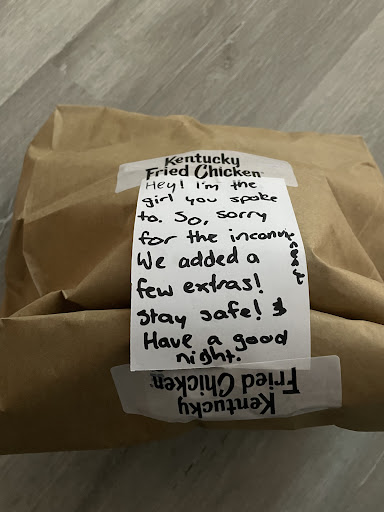 Kentucky
Fried Chicken
Hey! I'm the
girl you spoke
to. So, sorry
for the inconvenience
We added a
few extras!
Stay safe!
Have a good
night.
Fried Chicken
Kentucky